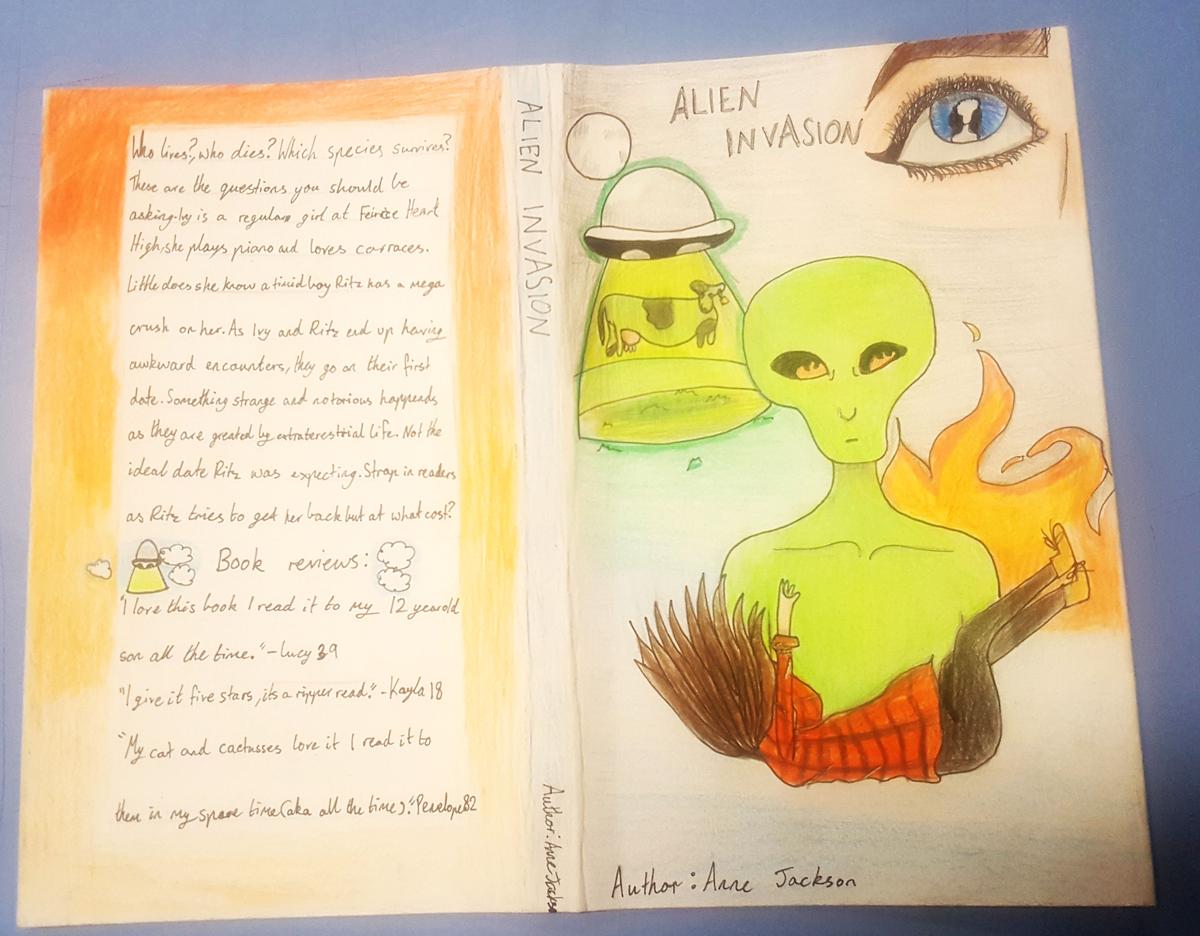 Who lives?, who dies? Which species survives?
These are the questions you should be
asking. Ivy is a regular girl at Feirce Heart
High, she plays piano and loves carraces.
Little does she know a timid boy Ritz has a mega
crush on her. As Ivy and Ritz end up having
awkward encounters, they go on their first
date. Something strange and notorious happends
as they are greated by extraterestrial life. Not the
ideal date Ritz was expecting. Strap in readers
as Ritz tries to get her back but at what cost?
Book reviews:
"I love this book I read it to my 12 year old
son all the time." - Lucy 39
"I give it five stars, its a ripper read." - Kayla 18
"My cat and cactusses love it I read it to
them in my spare time (aka all the time)." Penelope 82
ALIEN INVASION
Author: Anne Jackson
ALIEN
INVASION
Author: Anne Jackson